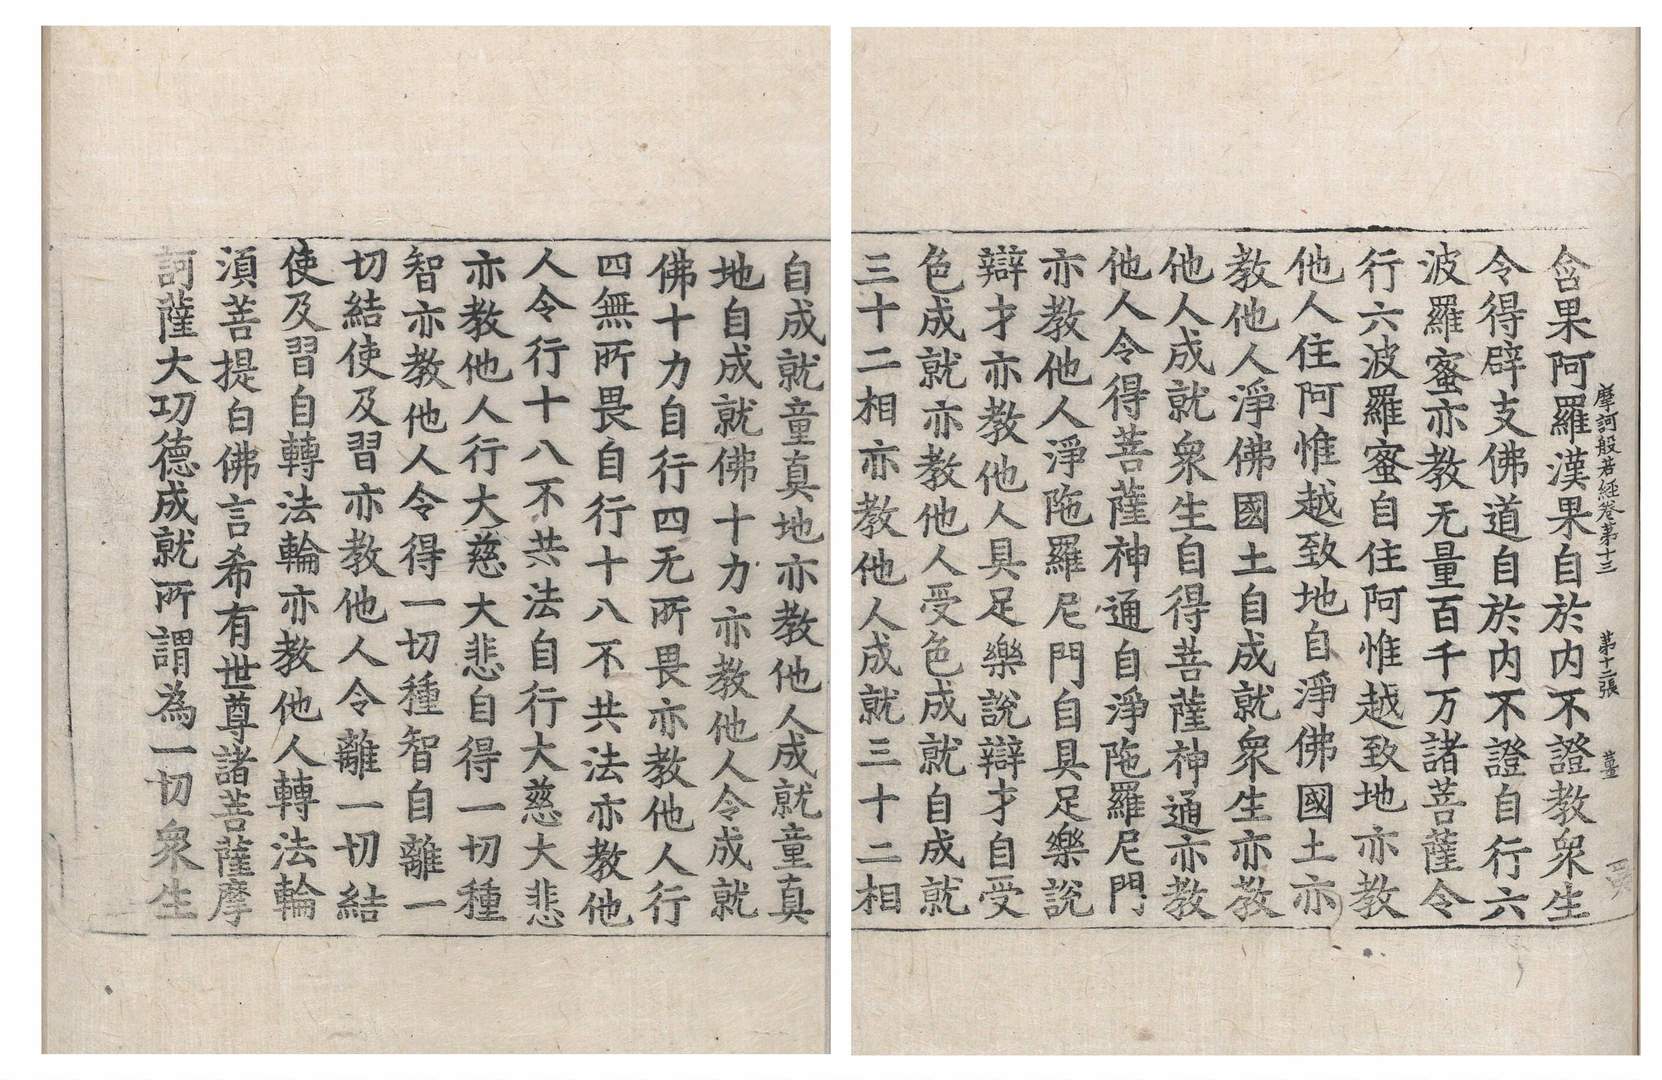 摩訶般若經卷第十三 第十二張 薑
含果阿羅漢果自於内不證教衆生
令得辟支佛道自於内不證自行六
波羅蜜亦教无量百千万諸菩薩令
行六波羅蜜自住阿惟越致地亦教
他人住阿惟越致地自淨佛國土亦
教他人淨佛國土自成就衆生亦教
他人成就衆生自得菩薩神通亦教
他人令得菩薩神通自淨陁羅尼門
亦教他人淨陁羅尼門自具足樂說
辯才亦教他人具足樂說辯才自受
色成就亦教他人受色成就自成就
三十二相亦教他人成就三十二相
自成就童真地亦教他人成就童真
地自成就佛十力亦教他人令成就
佛十力自行四无所畏亦教他人行
四無所畏自行十八不共法亦教他
人令行十八不共法自行大慈大悲
亦教他人行大慈大悲自得一切種
智亦教他人令得一切種智自離一
切結使及習亦教他人令離一切結
使及習自轉法輪亦教他人轉法輪
湏菩提白佛言希有世尊諸菩薩摩
訶薩大功德成就所謂為一切衆生